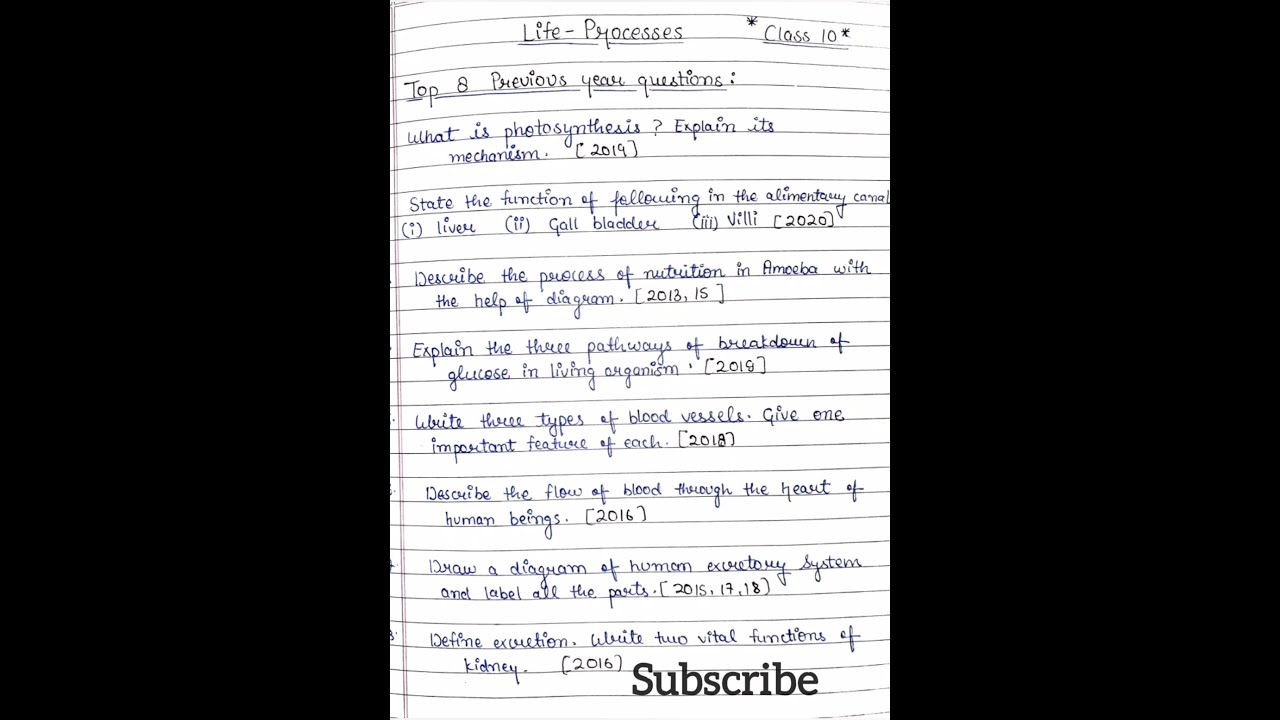 Life-Processes * Class 10*
Top 8 Previous year questions:
What is photosynthesis? Explain its
mechanism. [2019]
State the function of following in the alimentary canal
(i) liver (ii) Gall bladder (iii) Villi [2020]
Describe the process of nutrition in Amoeba with
the help of diagram. [2013, 15]
Explain the three pathways of breakdown of
glucose in living organism. [2019]
Write three types of blood vessels. Give one
important feature of each. [2018]
Describe the flow of blood through the heart of
human beings. [2016]
Draw a diagram of human excretory system
and label all the parts. [2015, 17, 18]
Define excretion. Write two vital functions of
kidney. [2016]
Subscribe